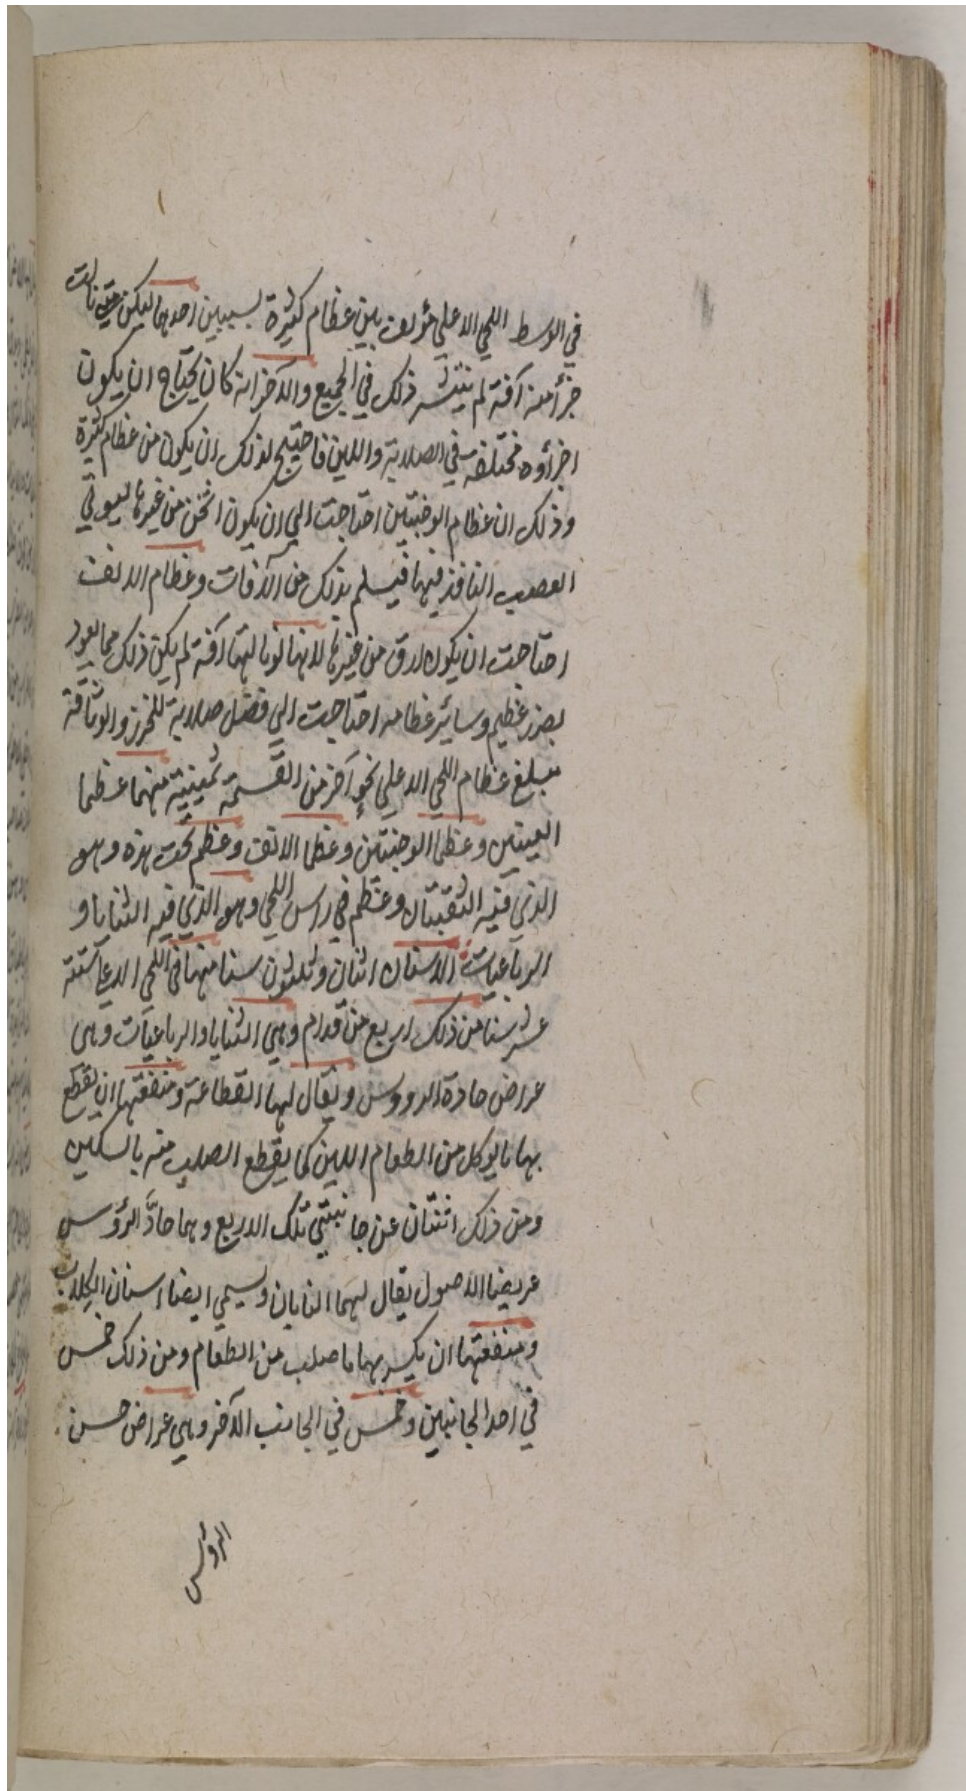 في الوسط اللحي الاعلي مؤلف بين عظام كثيرة لسببين احدهما ليكن متي نالت
جزأ منه آفة لم ينتشر ذلك في الجميع والآخر انه كان يحتاج ان يكون
اجزاؤه مختلفة في الصلابة واللين فاحتيج لذلك ان يكون من عظام كثيرة
وذلك ان عظام الوجنتين احتاجت الي ان يكون اثخن من غيرها ليوقي
العصب النافذ فيها فيسلم بذلك من الآفات وعظام الانف
احتاجت ان يكون ارق من غيرها لانها لو نالتها آفة لم يكن ذلك مما يعود
بضرر عظيم وسائر عظامه احتاجت الي فضل صلابة للحرز والوثاقة
مبلغ عظام اللحي الاعلي نحو آخر من القسمة ثمينية منهما عظما
العينين وعظما الوجنتين وعظما الانف وعظم تحت هذه وهو
الذي فيه الثقبتان وعظم في راس اللحي وهو الذي فيه الثنايا و
الرباعيات الاسنان اثنان وثلثون سنا منها في اللحي الاعلي ستة
عشر سنا من ذلك اربع من قدام وهي الثنايا والرباعيات وهي
عراض حادة الرووس ويقال لها القطاعة ومنفعتها ان يقطع
بها ما يوكل من الطعام اللين كما يقطع الصلب منه بالسكين
ومن ذلك اثنتان عن جانبتي تلك الاربع وهما حادَّ الرؤس
عريضا الاصول يقال لهما النابان ويسمي ايضا اسنان الكلاب
ومنفعتهما ان يكسر بهما ما صلب من الطعام ومن ذلك خمس
في احد الجانبين وخمس في الجانب الآخر وهي عراض خشن
الروس